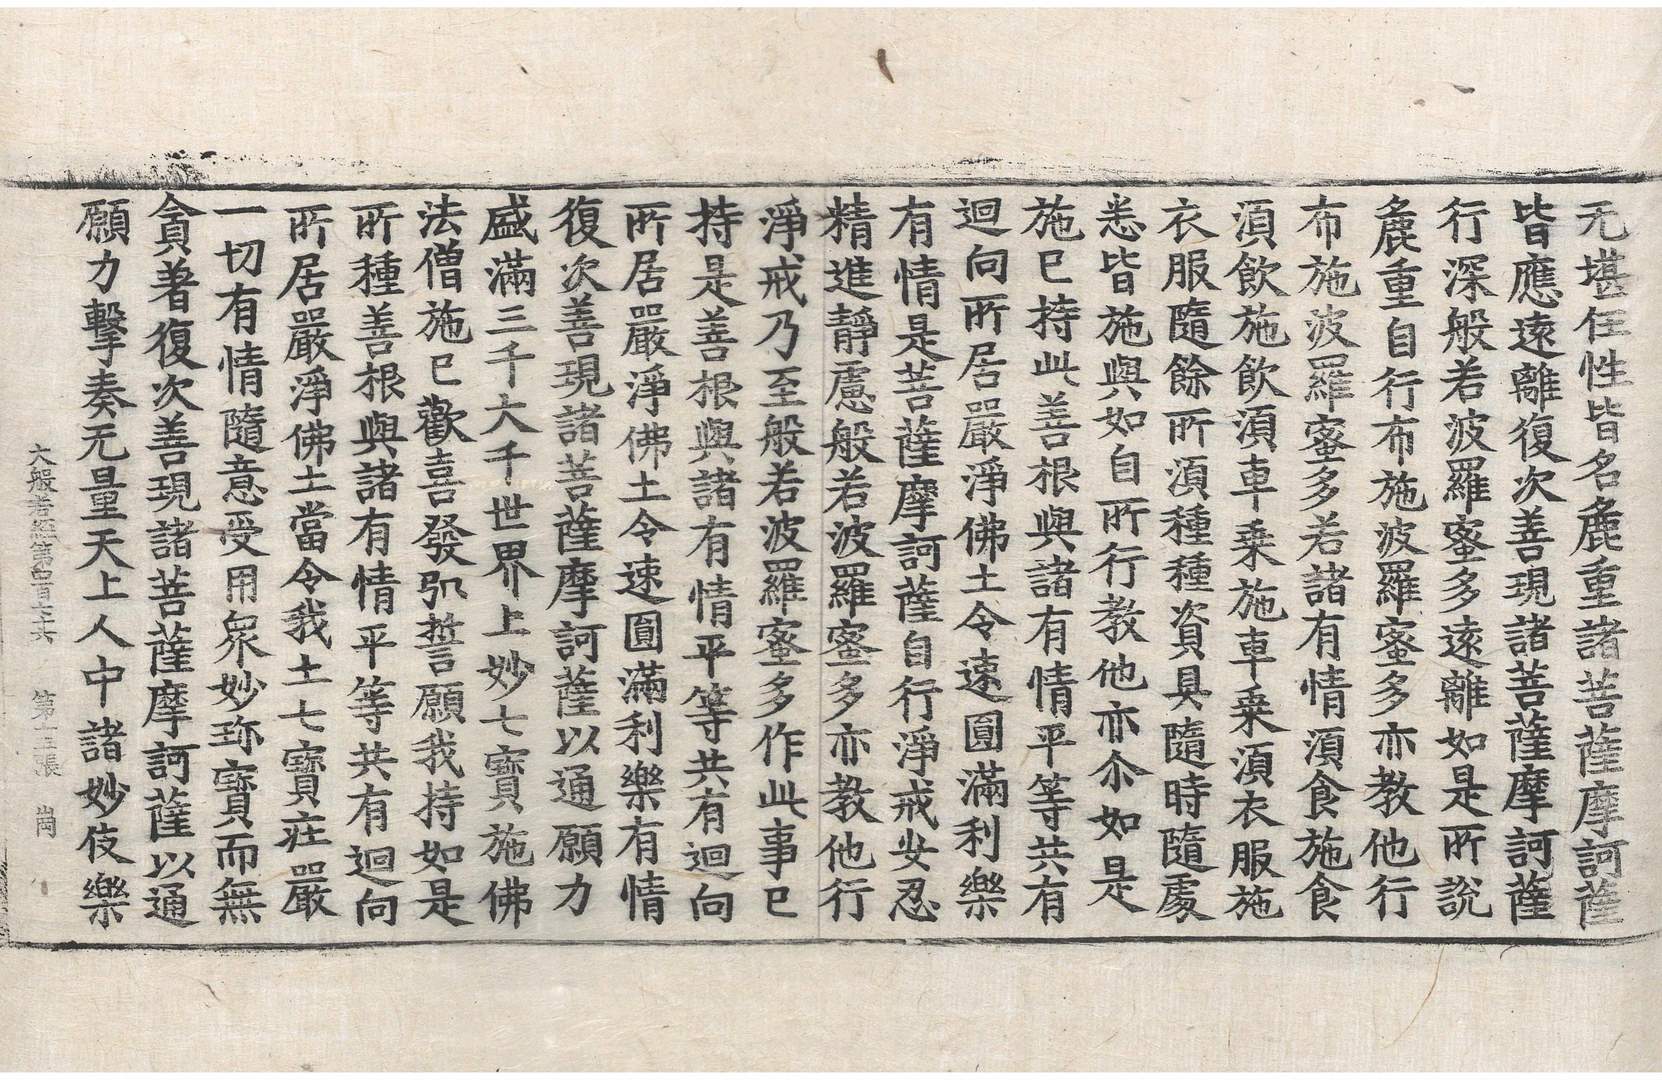 无堪任性皆名麁重諸菩薩摩訶薩
皆應遠離復次善現諸菩薩摩訶薩
行深般若波羅蜜多遠離如是所說
麁重自行布施波羅蜜多亦教他行
布施波羅蜜多若諸有情湏食施食
湏飲施飲湏車乗施車乗湏衣服施
衣服隨餘所湏種種資具隨時隨處
悉皆施與如自所行教他亦尒如是
施已持此善根與諸有情平等共有
迴向所居嚴淨佛土令速圓滿利樂
有情是菩薩摩訶薩自行淨戒安忍
精進靜慮般若波羅蜜多亦教他行
淨戒乃至般若波羅蜜多作此事已
持是善根與諸有情平等共有迴向
所居嚴淨佛土令速圓滿利樂有情
復次善現諸菩薩摩訶薩以通願力
盛滿三千大千世界上妙七寶施佛
法僧施已歡喜發弘誓願我持如是
所種善根與諸有情平等共有迴向
所居嚴淨佛土當令我土七寶荘嚴
一切有情隨意受用眾妙珎寶而無
貪著復次善現諸菩薩摩訶薩以通
願力擊奏无量天上人中諸妙伎樂
大般若經第四百七十六 第十三張 崗